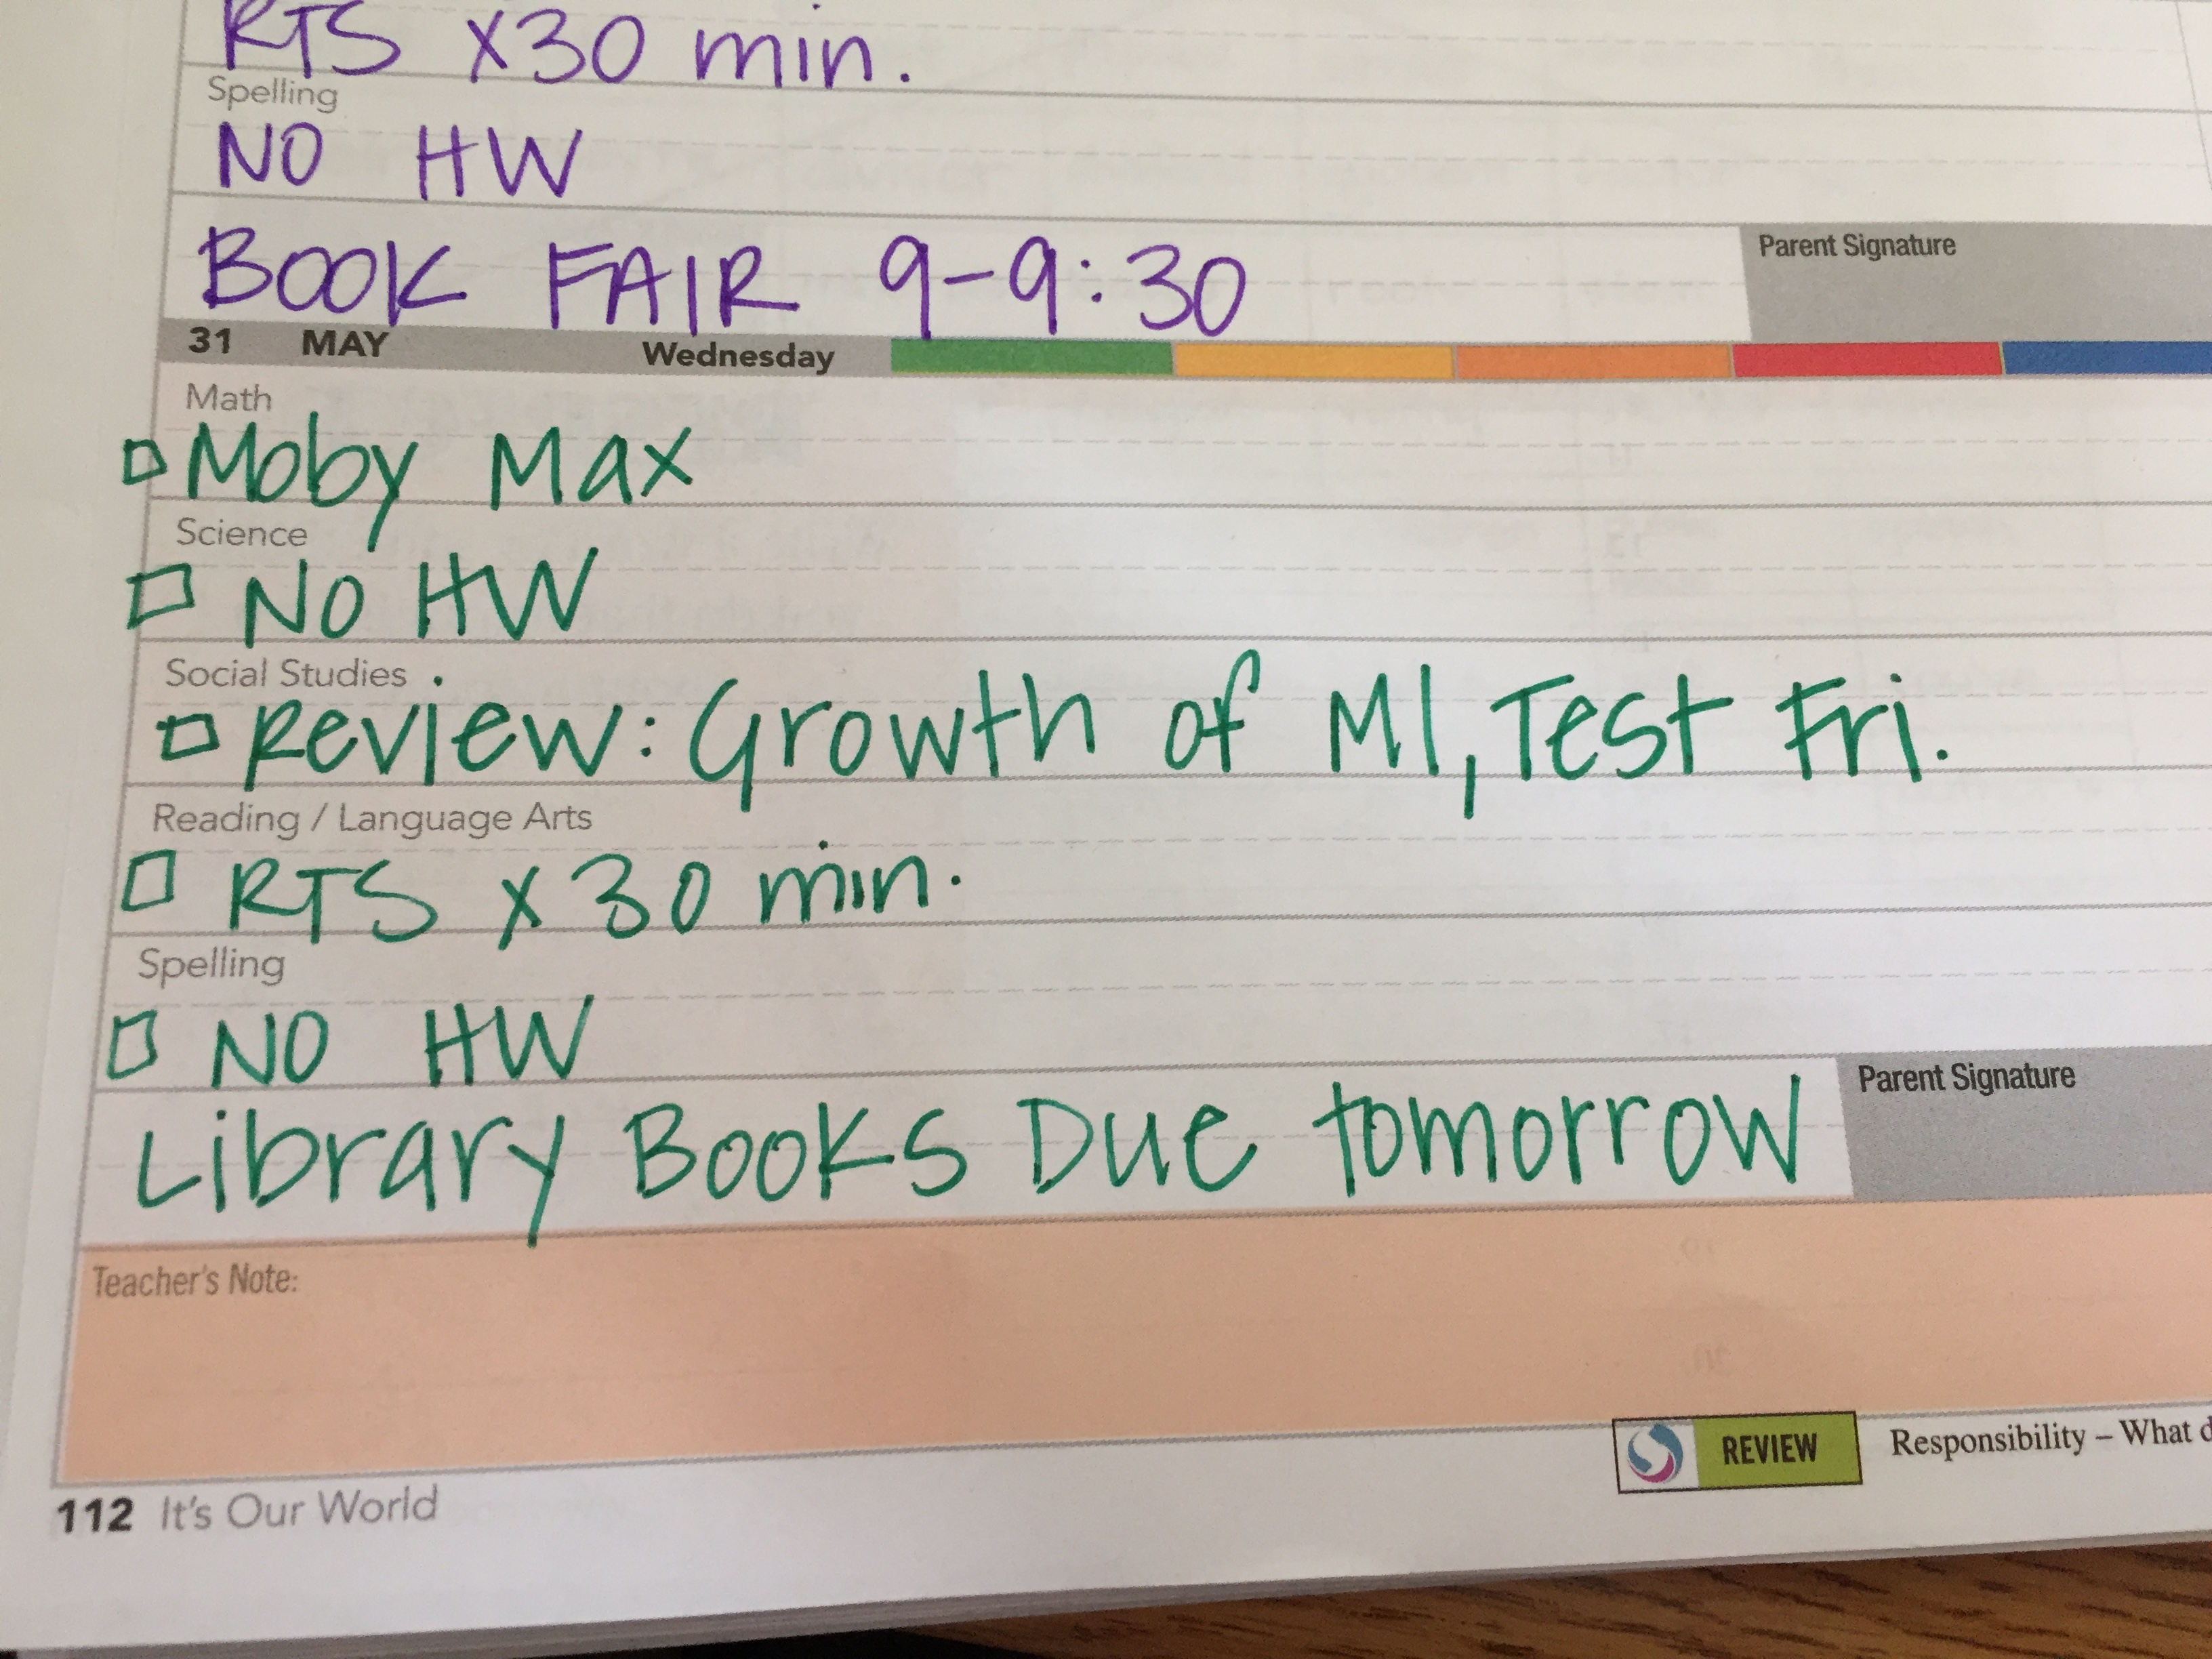 RTS x30 min.
Spelling
NO HW
BOOK FAIR 9-9:30
Parent Signature
31 MAY Wednesday
Math
Moby Max
Science
NO HW
Social Studies
Review: Growth of MI, Test Fri.
Reading / Language Arts
RTS x 30 min.
Spelling
NO HW
Library Books Due tomorrow
Parent Signature
Teacher's Note:
REVIEW Responsibility – What d
112 It's Our World